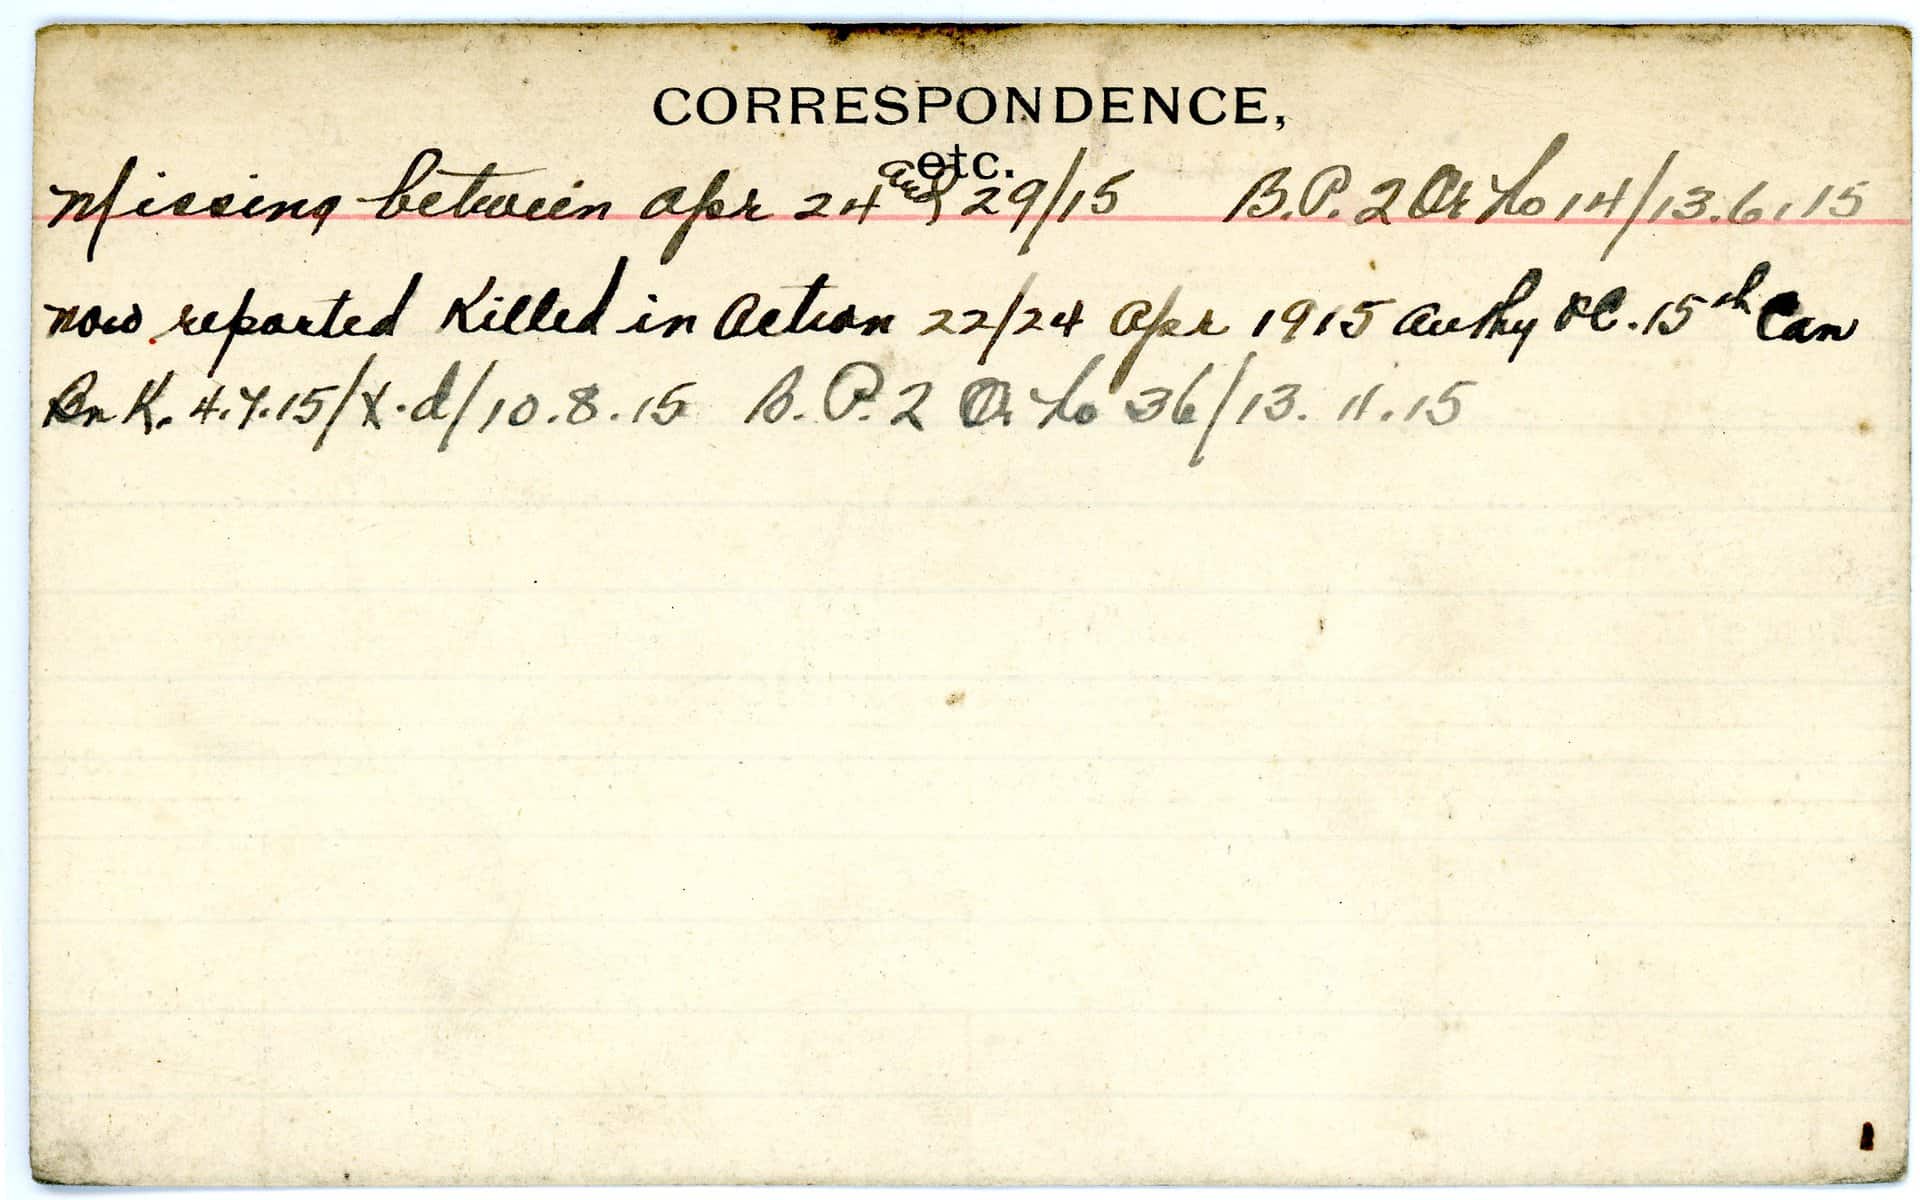 CORRESPONDENCE,
etc.
Missing between Apr 24 and 29/15 B.P. 2 Or No 14/13.6.15
now reported Killed in Action 22/24 Apr 1915 Authy OC. 15th Can
Bn K. 4.7.15/X.d/10.8.15 B.P. 2 Or No 36/13.11.15